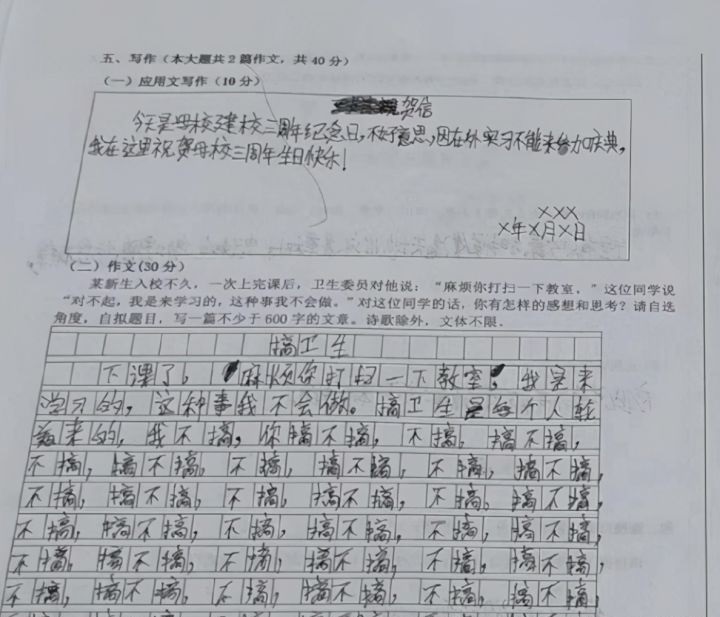 五、写作（本大题共2篇作文，共40分）
（一）应用文写作（10分）
贺信
今天是母校建校三周年纪念日，不好意思，因在外实习不能来参加庆典，
我在这里祝贺母校三周年生日快乐！
XXX
X年X月X日
（二）作文(30分)
某新生入校不久，一次上完课后，卫生委员对他说：“麻烦你打扫一下教室。”这位同学说
“对不起，我是来学习的，这种事我不会做。”对这位同学的话，你有怎样的感想和思考？请自选
角度，自拟题目，写一篇不少于600字的文章。诗歌除外，文体不限.
搞卫生
下课了。麻烦你打扫一下教室，我是来
学习的，这种事我不会做。搞卫生是每个人轮
着来的，我不搞，你搞不搞，不搞，搞不搞，
不搞，搞不搞，不搞，搞不搞，不搞，搞不搞，
不搞，搞不搞，不搞，搞不搞，不搞，搞不搞，
不搞，搞不搞，不搞，搞不搞，不搞，搞不搞，
不搞，搞不搞，不搞，搞不搞，不搞，搞不搞，
不搞，搞不搞，不搞，搞不搞，不搞，搞不搞，